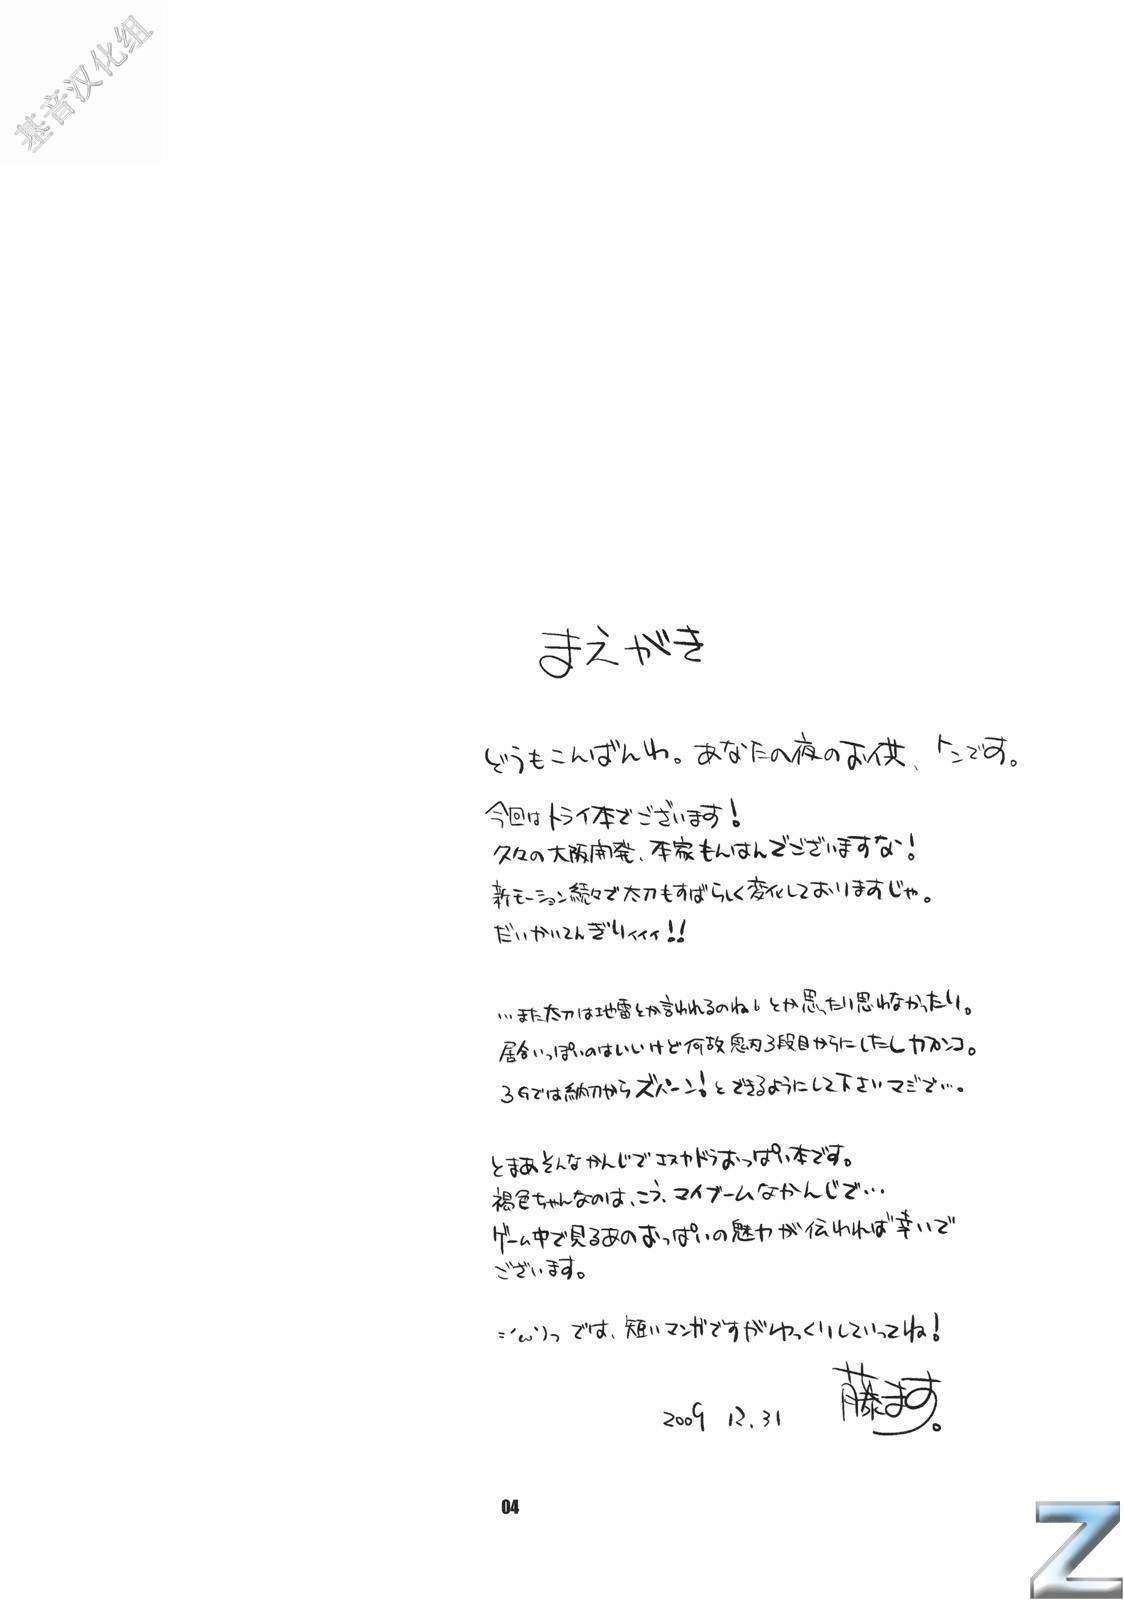 基音汉化组
まえがき
どうもこんばんわ。あなたの夜のお供、トンです。
今回はトライ本でございます!
久々の大阪開発、本家もんはんでございますな!
新モーション続々で太刀もすばらしく変化しておりますじゃ。
だいかいてんぎりィィィ!!
…また太刀は地雷とか言われるのねとか思ったり思わなかったり。
居合いっぽいのはいいけど何故鬼刃3段目からにしたしカプンコ。
3Gでは納刀からズバーン!とできるようにして下さいマジで…。
とまあそんなかんじでエスカドラおっぱい本です。
褐色ちゃんなのは、こう、マイブームなかんじで…
ゲーム中で見るあのおっぱいの魅力が伝われば幸いで
ございます。
では、短いマンガですがゆっくりしていってね!
藤ます。
2009 12.31
04
Z